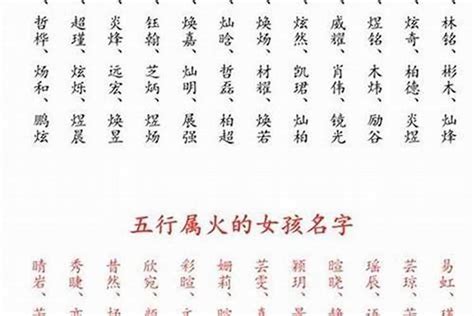 、林铭、彬木、灿烽
、炫奇、柏德、炎煜
、煜铭、木炜、励谷
、威耀、肖伟、镜光
、炫然、凯珺、灿柏
、焕炀、材耀、焕若
、灿晗、哲磊、柏超
、焕嘉、灿明、展强
、钰翰、芝炳、煜炀
、炎烽、远宏、焕昱
、超瑾、炫烁、煜晨
、哲桦、炀和、鹏炫
五行属火的女孩名字
易虹、瑾
芸琼、若
瑶辰、
暄晓、
颖玥、
芸雯、
姗莉、
彩暄、
欣宛、
昔然、
秀睫、
晴岩、